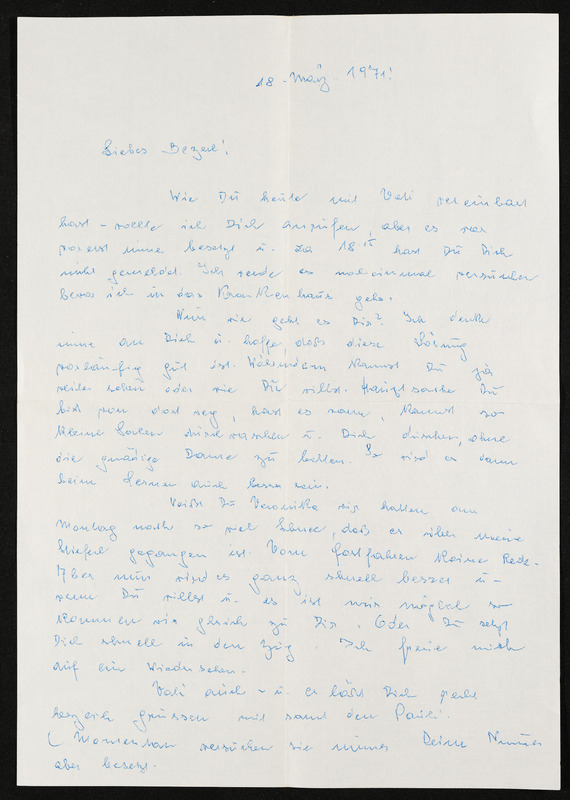 18. März 1971!
Liebes Bezerl!
Wie Du heute mit Vati vereinbart
hast - wollte ich Dich anrufen, aber es war
vorerst immer besetzt u. ca 18 15 hast Du Dich
nicht gemeldet. Ich werde es noch einmal versuchen
bevor ich in das Krankenhaus gehe.
Nun wie geht es Dir? Ich denke
immer an Dich u. hoffe daß diese Lösung
vorläufig gut ist. Währenddem kannst Du ja
weiter sehen oder wie Du willst. Hauptsache Du
bist von dort weg, hast es warm, kannst so
kleine Sachen durchwaschen u. Dich duschen, ohne
die gnädige Dame zu bitten. So wird es dann
beim Lernen auch besser sein.
Weißt Du Veronika wir hatten am
Montag noch so viel Schnee, daß er über meine
Stiefel gegangen ist. Vom fortfahren keine Rede.
Aber nun wird es ganz schnell besser u-
wenn Du willst u. es ist mir möglich so
kommen wir gleich zu Dir. Oder Du setzt
Dich schnell in den Zug. Ich freue mich
auf ein Wiedersehen.
Vati auch - u. er läßt Dich sehr
herzlich grüssen mit samt den Pauli.
( Momentan versuchen wir immer Deine Nummer
aber besetzt.